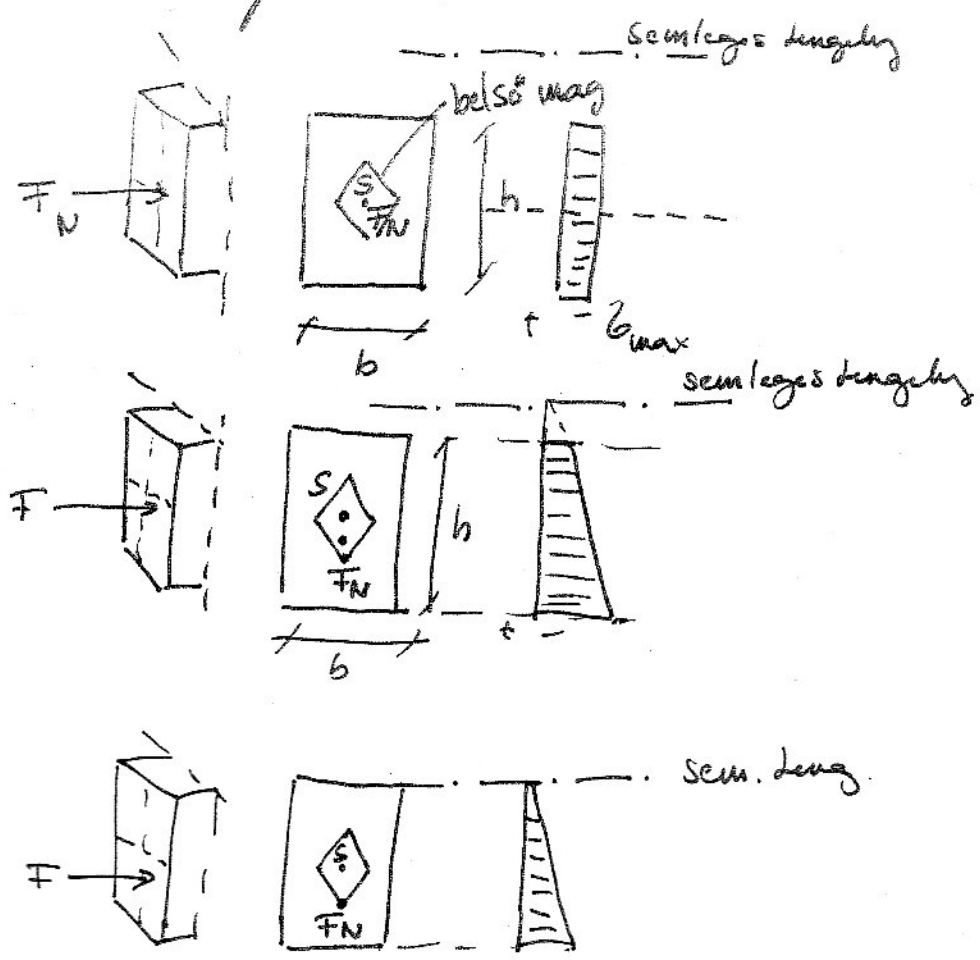 semleges tengely
belső mag
F_N
S
F_N
h
b
+ - σmax
semleges tengely
F
S
F_N
h
b
+ -
sem. teng.
F
S
F_N